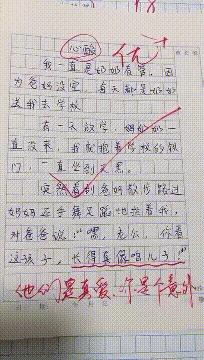 心酸
优+
我一直是奶奶看管，因
为爸妈没空，每天都是奶奶
送我去学校
有一天放学，奶奶一
直没来，我就抱着学校的铁
门，一直坐到天黑。
突然看到爸妈散步路过
妈妈还手舞足蹈地指着我，
对爸爸说：“嘿，老公，你看
这孩子，长得真像咱儿子！”
他们是真爱，你是个意外